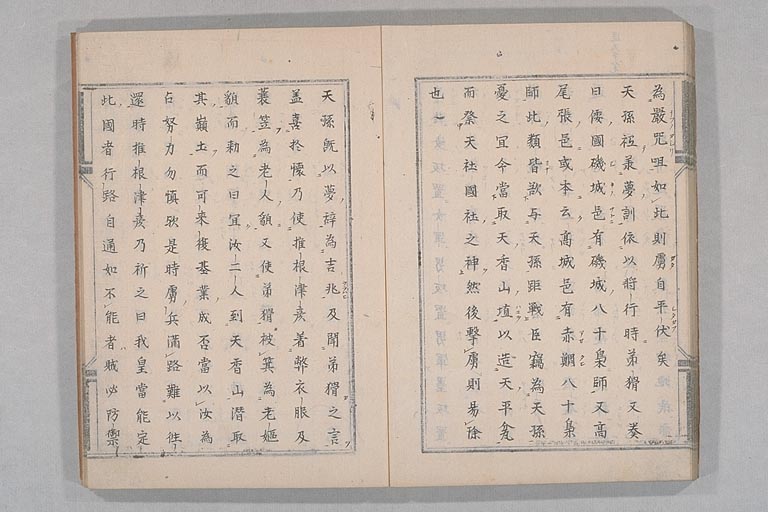 為嚴咒咀如此則虜自平伏矣
天孫祗兼夢訓依以将行時弟猾又奏
曰倭國磯城邑有磯城八十梟師又高
尾張邑或本云高城邑有赤銅八十梟
師此類皆欲与天孫距戰臣竊為天孫
憂之冝今當取天香山埴以造天平瓮
而祭天社國社之神然後擊虜則易除
也
天孫既以夢辞為吉兆及聞弟猾之言
益喜於懷乃使推根津彦着弊衣服及
蓑笠為老人䫉又使弟猾被箕為老嫗
䫉而勅之曰冝汝二人到天香山潜取
其巔土而可来㮴基業成否當以汝為
占努力勿慎欤是時虜兵満路難以徃
還時推根津彦乃祈之曰我皇當能定
此國者行路自通如不能者賊必防禦